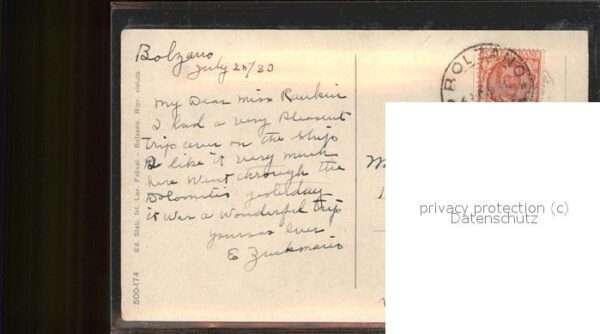 Bolzano
July 25/30
My Dear Miss Rankin
I had a very pleasent
trip over on the ship
I like it very much
here Went through the
Dolomitis yesterday
it was a wonderful trip
yours as ever
E
BOLZANO
privacy protection (c)
Datenschutz
500474 Ed. Stab. Int. Lav. Fotogr. - Bolzano. Ripr. vietata.